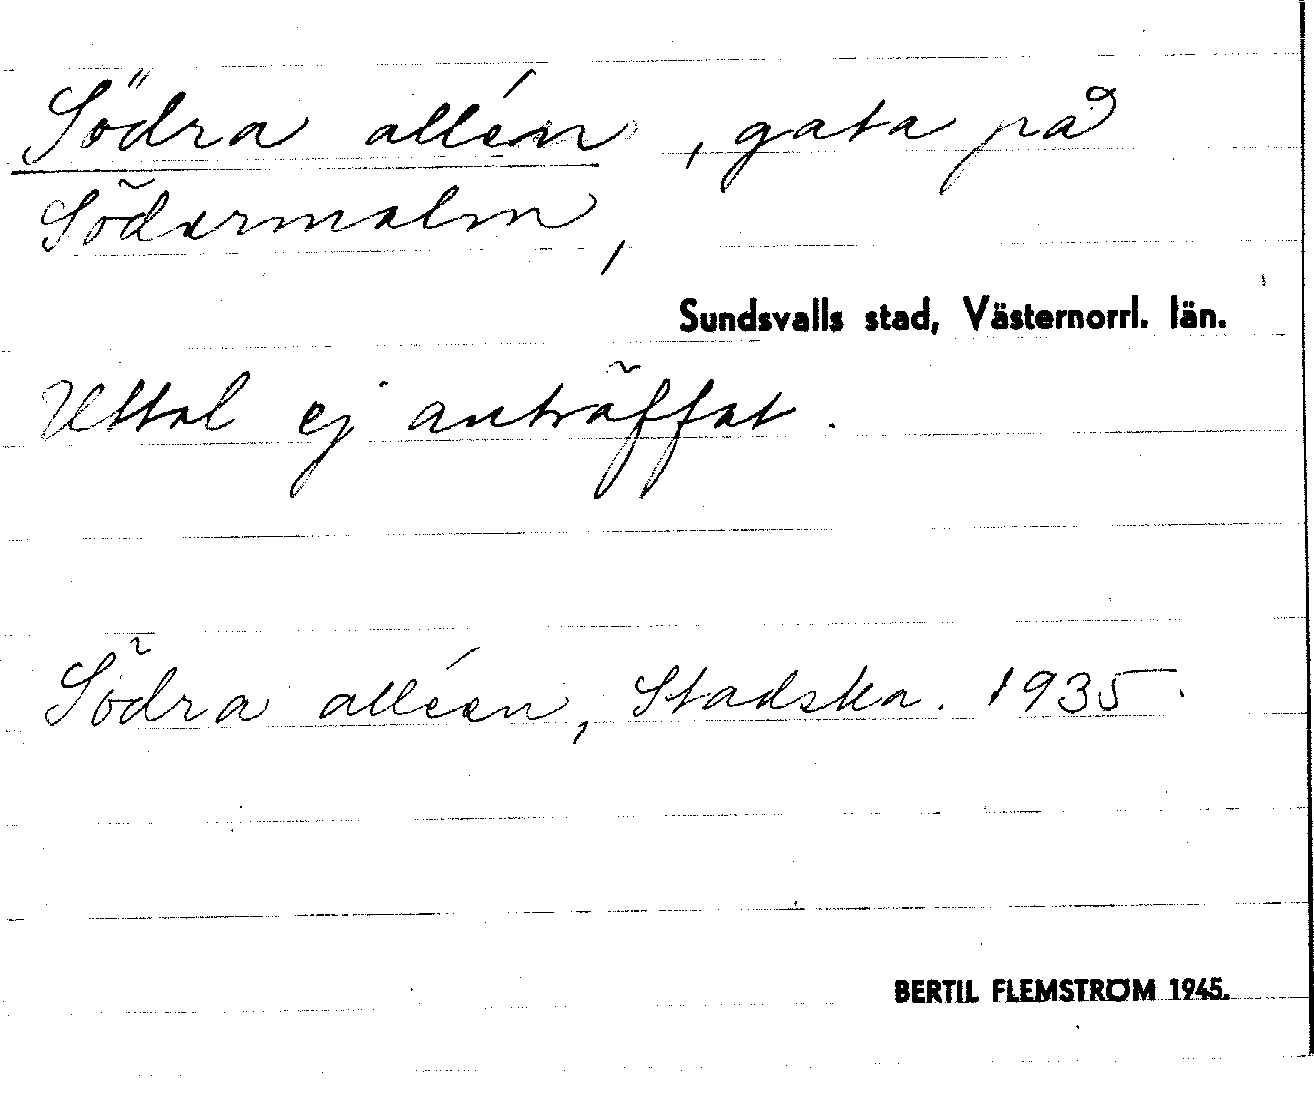 Södra allén, gata på
Södermalm,
Sundsvalls stad, Västernorrl. län.
Uttal ej anträffat.
Södra alléen, Stadska. 1935.
BERTIL FLEMSTRÖM 1945.